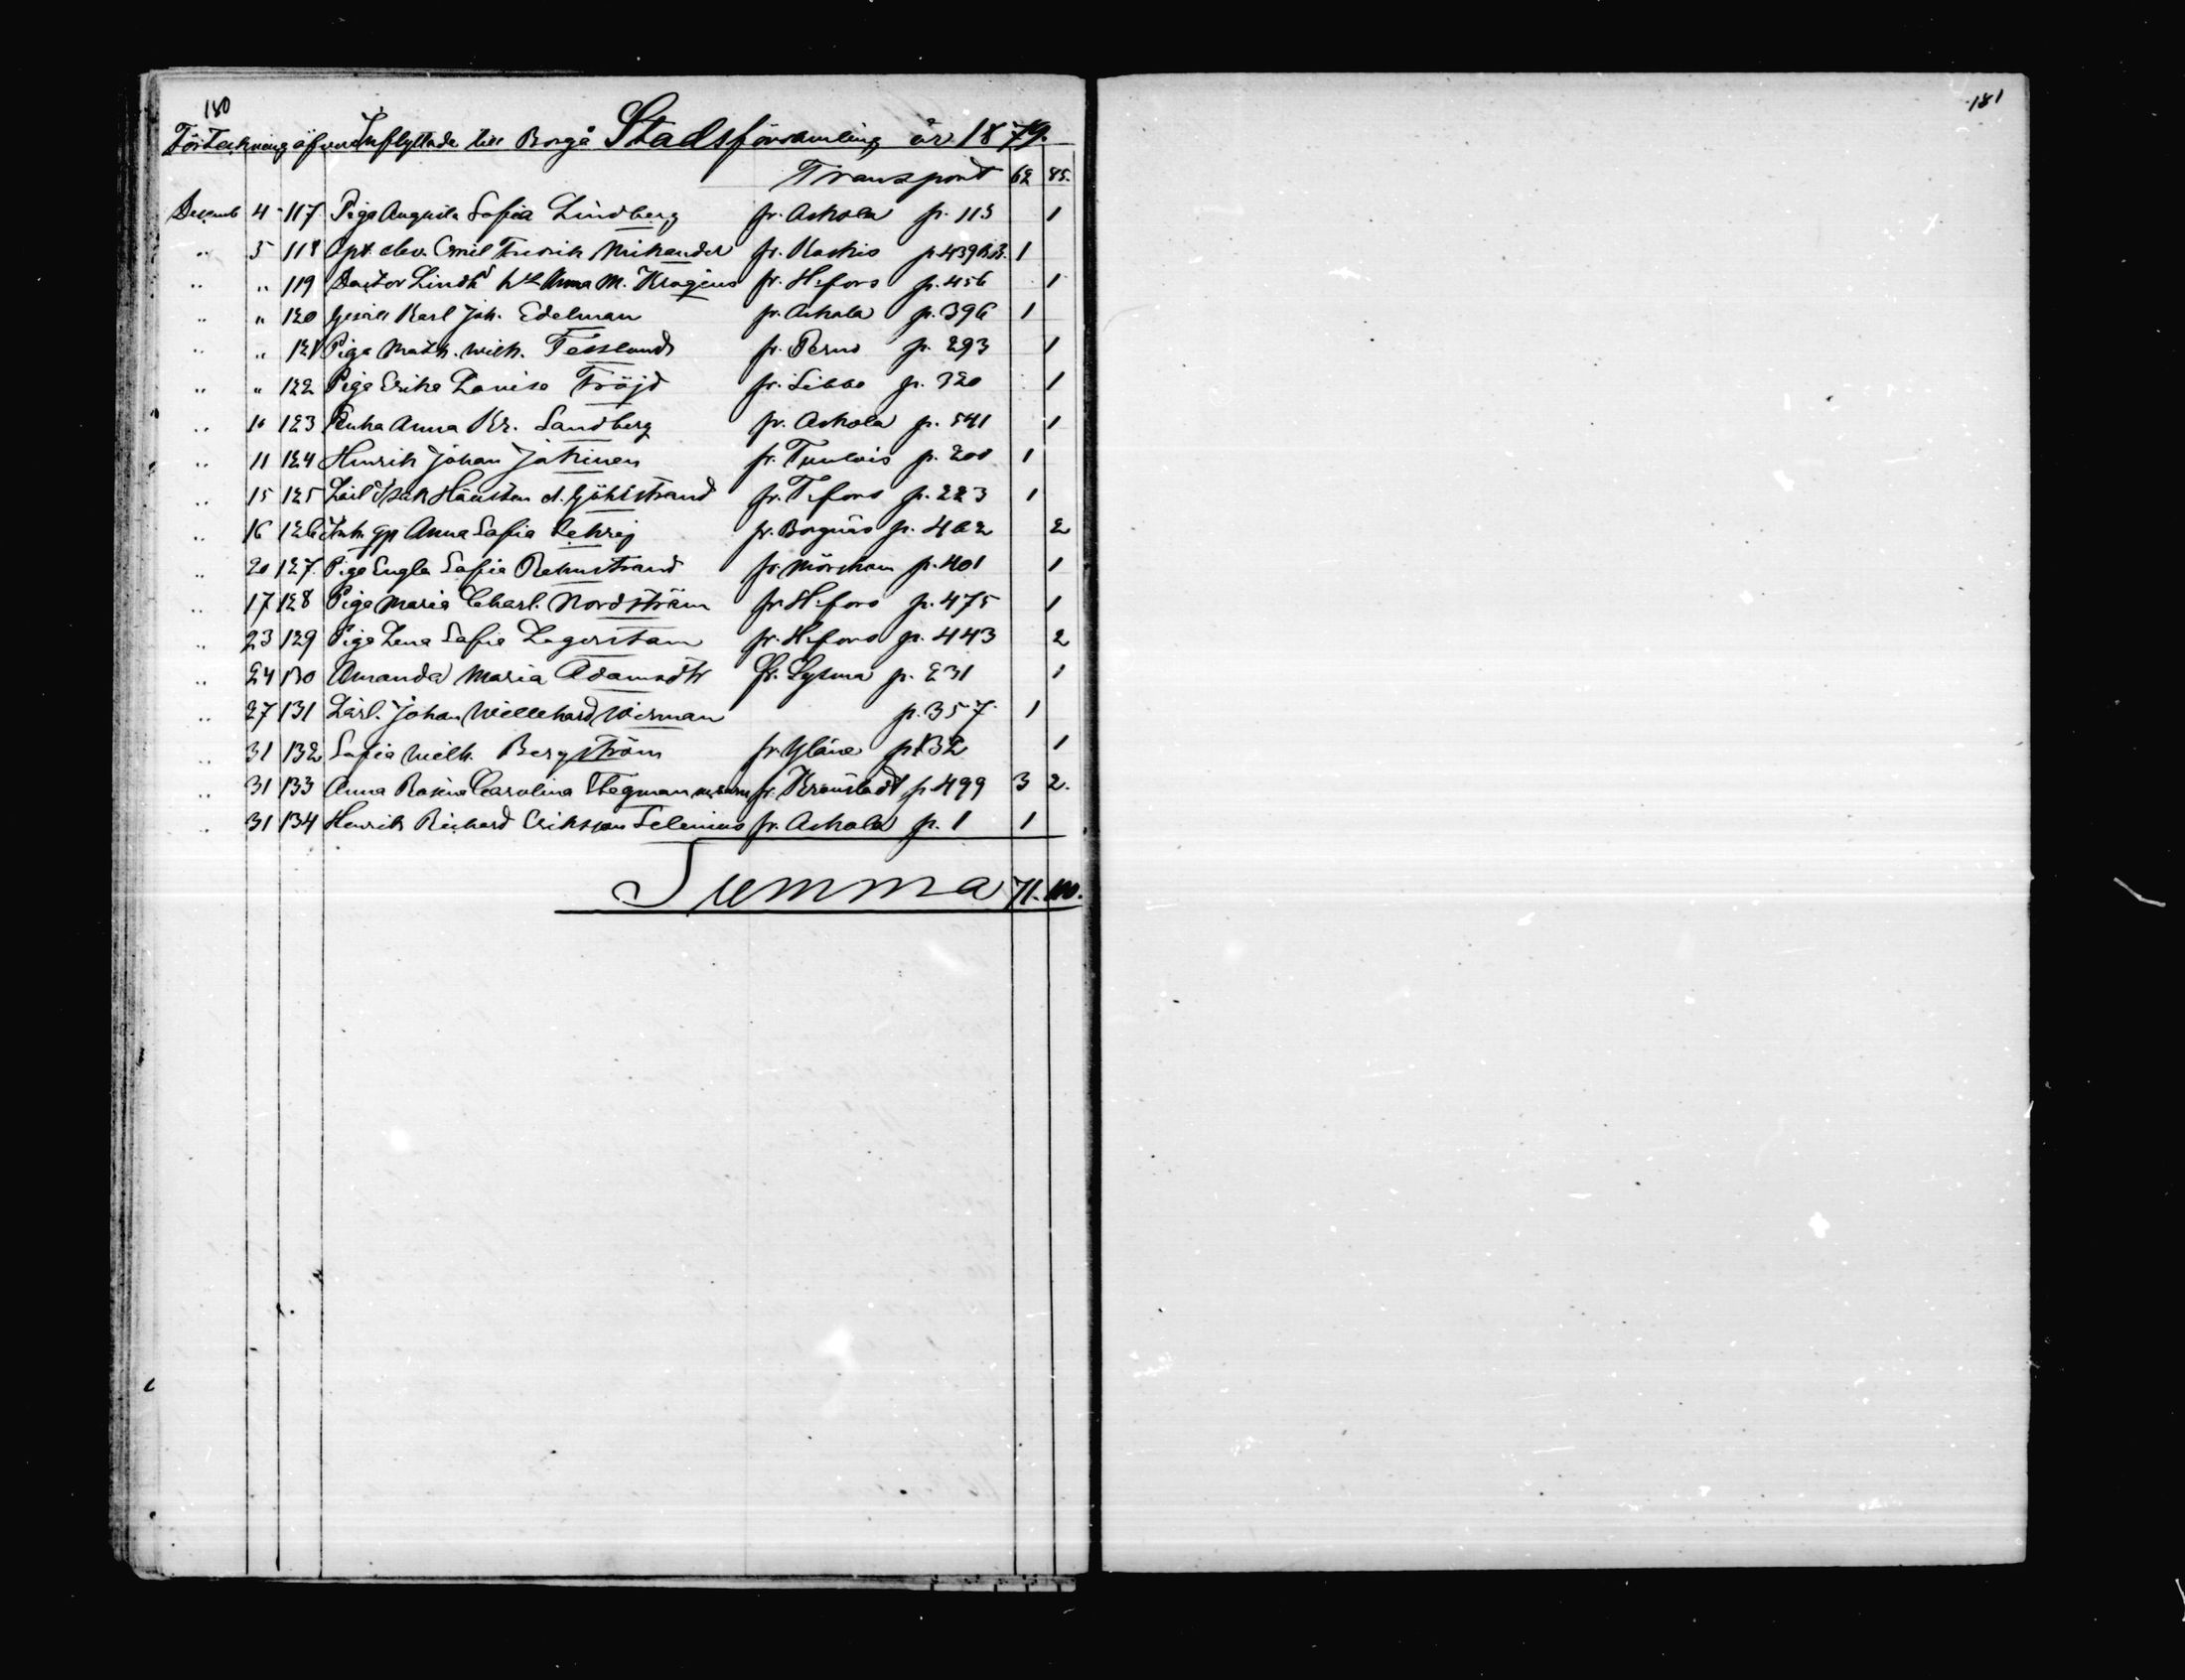 180
Förteckning öfver Inflyttade till Borgå Stadsförsamling år 1879.
Transport 62 85.
Decemb 4 117 Piga Augusta Sofia Lindberg fr. Askola p. 113 1
" 5 118 Apt. elev. Emil Fredrik Nikander fr. Kaskis p. 439 1
" " 119 Doctor Lindhs Anna M. Krogius fr. H:fors p. 456 1
" " 120 Gesäll Karl Joh. Edelman fr. Askola p. 396 1
" " 121 Piga Math. Wilh. Tesslund fr. Perno p. 293 1
" " 122 Piga Erika Lovisa Fröjd fr. Sibbo p. 320 1
" " 123 Enka Anna Kr. Sandberg fr. Askola p. 541 1
" 11 124 Henrik Johan Jokinen fr. Tuulois p. 200 1
" 15 125 Lärl. Isak fr. T:fors p. 223 1
" 16 126 Anna Sofia fr. Borgnäs p. 462 2
" 20 127. Piga Engla Sofia Rehnstrand fr. Mörskom p. 401 1
" 17 128 Piga Maria Charl. Nordström fr. H:fors p. 475 1
" 23 129 Piga Lena Sofia Lagerstam fr. H:fors p. 443 2
" 24 130 Amanda Maria Adamsdtr fr. Sysmä p. 231 1
" 27 131 Lärl. Johan Willehard Wirman p. 357 1
" 31 132 Sofia Wilh. Bergström fr. Yläne p. 132 1
" 31 133 Anna Rosina Carolina Stegman m. barn fr. Kronstadt p. 499 3 2.
" 31 134 Henrik Richard Eriksson Selenius fr. Askola p. 1 1
Summa 71. 100.
181